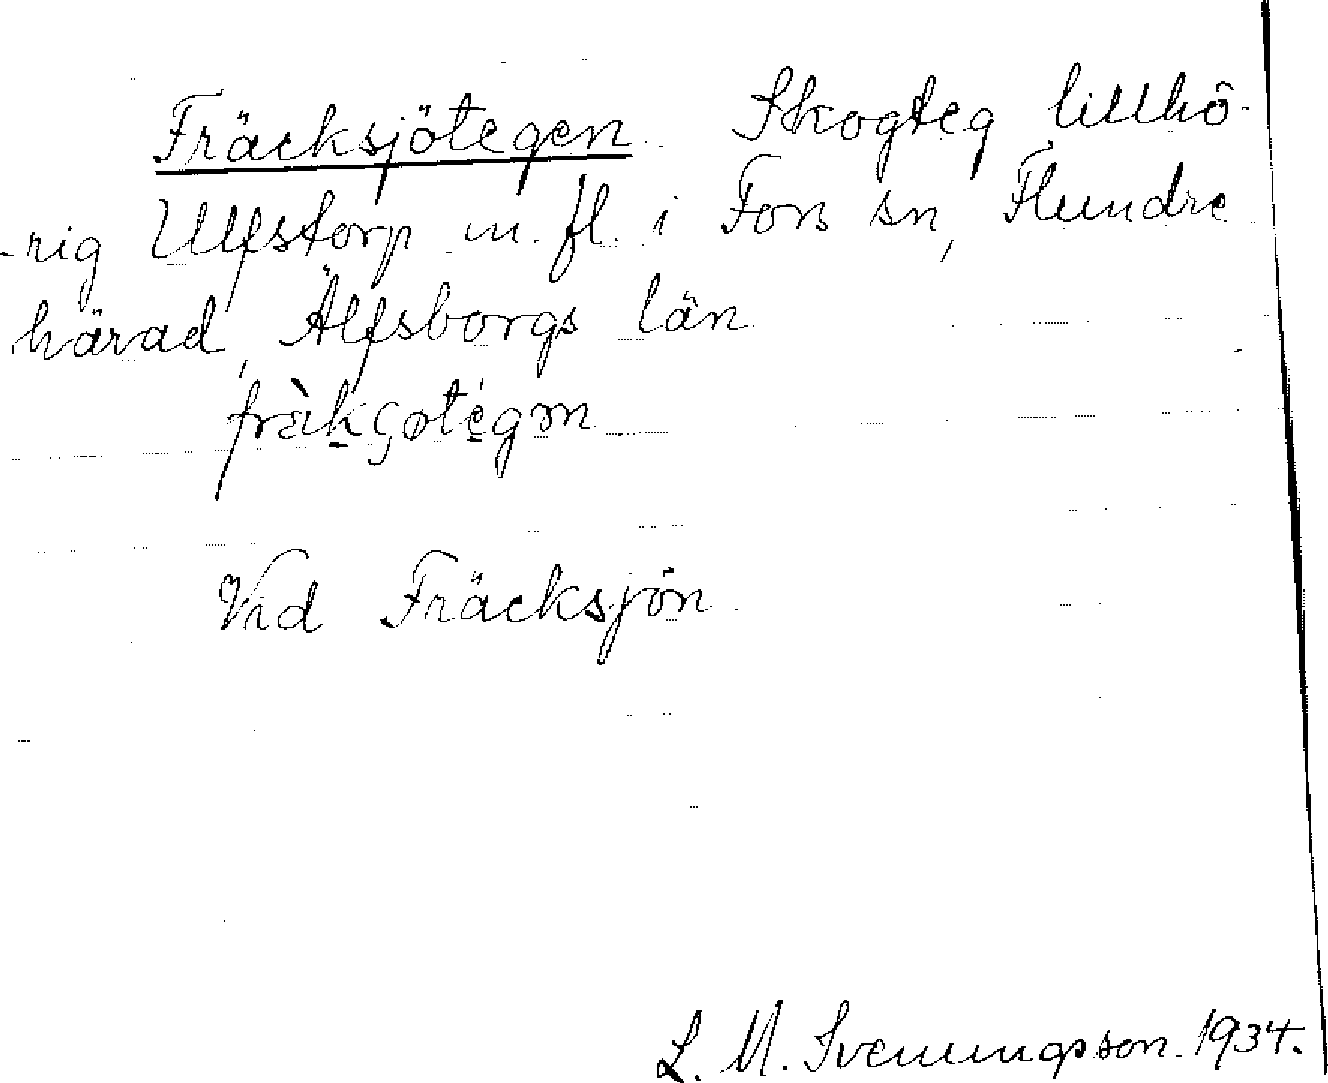 Fräcksjötegen. Skogteg tillhö-
-rig Ulfstorp m. fl. i Fors sn, Flundre
härad, Älfsborgs län
Vid Fräcksjön.
L. M. Svenungsson. 1934.